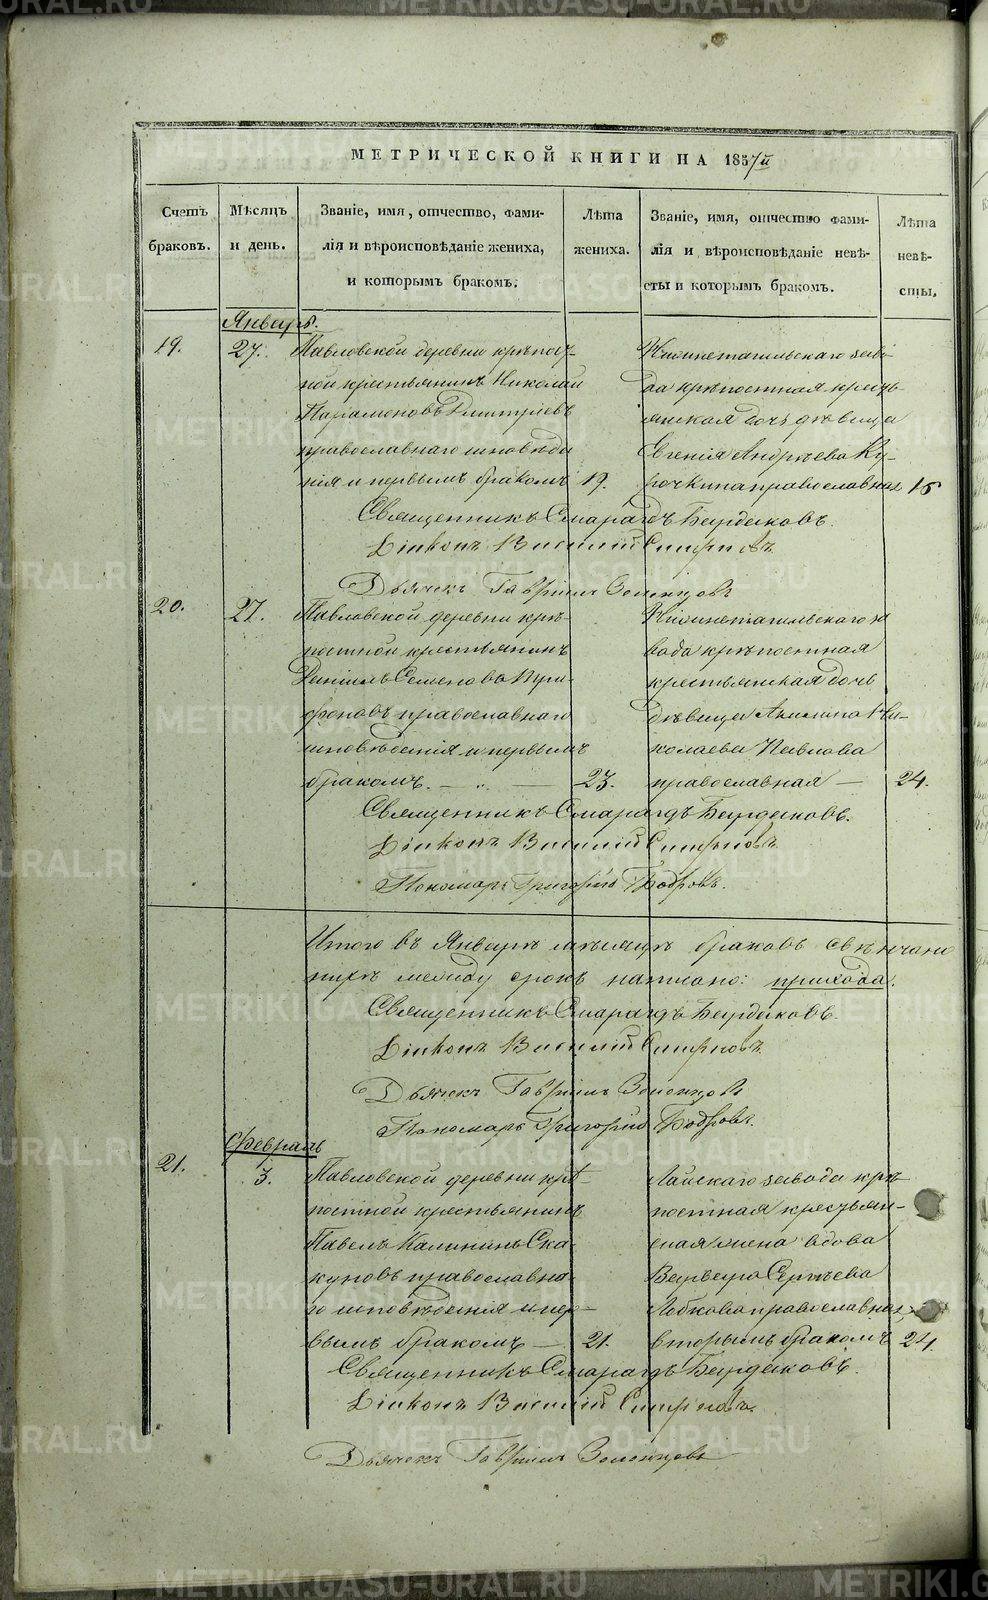 МЕТРИЧЕСКОЙ КНИГИ НА 1857й
Счетъ браковъ.
Мѣсяцъ и день.
Званіе, имя, отчество, фами-
лія и вѣроисповѣданіе жениха,
и которымъ бракомъ.
Лѣта жениха.
Званіе, имя, отчество фами-
лія и вѣроисповѣданіе невѣ-
сты и которымъ бракомъ.
Лѣта невѣ-
сты.
Январь.
19.
27.
Павловской деревни крѣпост-
ной крестьянинъ Николай
Парамоновъ Дмитріевъ
православнаго исповѣда
нія и первымъ бракомъ
19.
Нижнетагильскаго заво-
да крѣпостная кресть
янская дочь дѣвица
Евгенія Андреева Ку-
рочкина православная
18
Священникъ Смарагдъ Бурдаковъ.
Діаконъ Василій Смирновъ
Дьячекъ Гавріилъ
20.
27.
Павловской деревни крѣ-
постной крестьянинъ
Даніилъ Семеновъ
православнаго
исповѣданія и первымъ
бракомъ. — „ —
23.
Нижнетагильскаго за
вода крѣпостная
крестьянская дочь
дѣвица Акилина Ни-
колаева Павлова
православная —
24.
Священникъ Смарагдъ Бурдаковъ.
Діаконъ Василій Смирновъ
Пономарь Григорій Бобровъ.
Итого въ Январѣ мѣсяцѣ браковъ свѣнчано
написано: прихода.
Священникъ Смарагдъ Бурдаковъ.
Діаконъ Василій Смирновъ
Дьячекъ Гавріилъ
Пономарь Григорій Бобровъ.
Февраль
21.
3.
Павловской деревни крѣ-
постной крестьянинъ
Павелъ Калининъ Ска-
куновъ православна-
го исповѣданія и пер-
вымъ бракомъ —
21.
Лайскаго завода крѣ-
постная крестьян-
ская жена вдова
Варвара Сергѣева
Лобкова православная,
вторымъ бракомъ
24.
Священникъ Смарагдъ Бурдаковъ.
Діаконъ Василій Смирновъ.
Дьячекъ Гавріилъ
METRIKI.GASO-URAL.RU